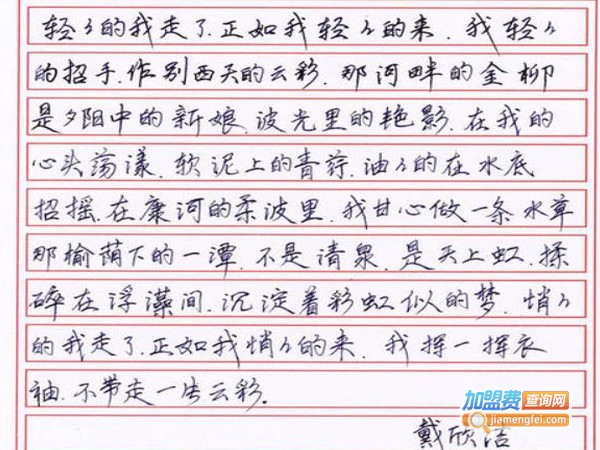 轻々的我走了.正如我轻々的来.我轻々
的招手.作别西天的云彩.那河畔的金柳
是夕阳中的新娘.波光里的艳影.在我的
心头荡漾.软泥上的青荇.油々的在水底
招摇.在康河的柔波里.我甘心做一条水草
那榆荫下的一潭.不是清泉.是天上虹.揉
碎在浮藻间.沉淀着彩虹似的梦.悄々
的我走了.正如我悄々的来.我挥一挥衣
袖.不带走一片云彩.
戴欣洁
加盟费查询网
jiamengfei.com